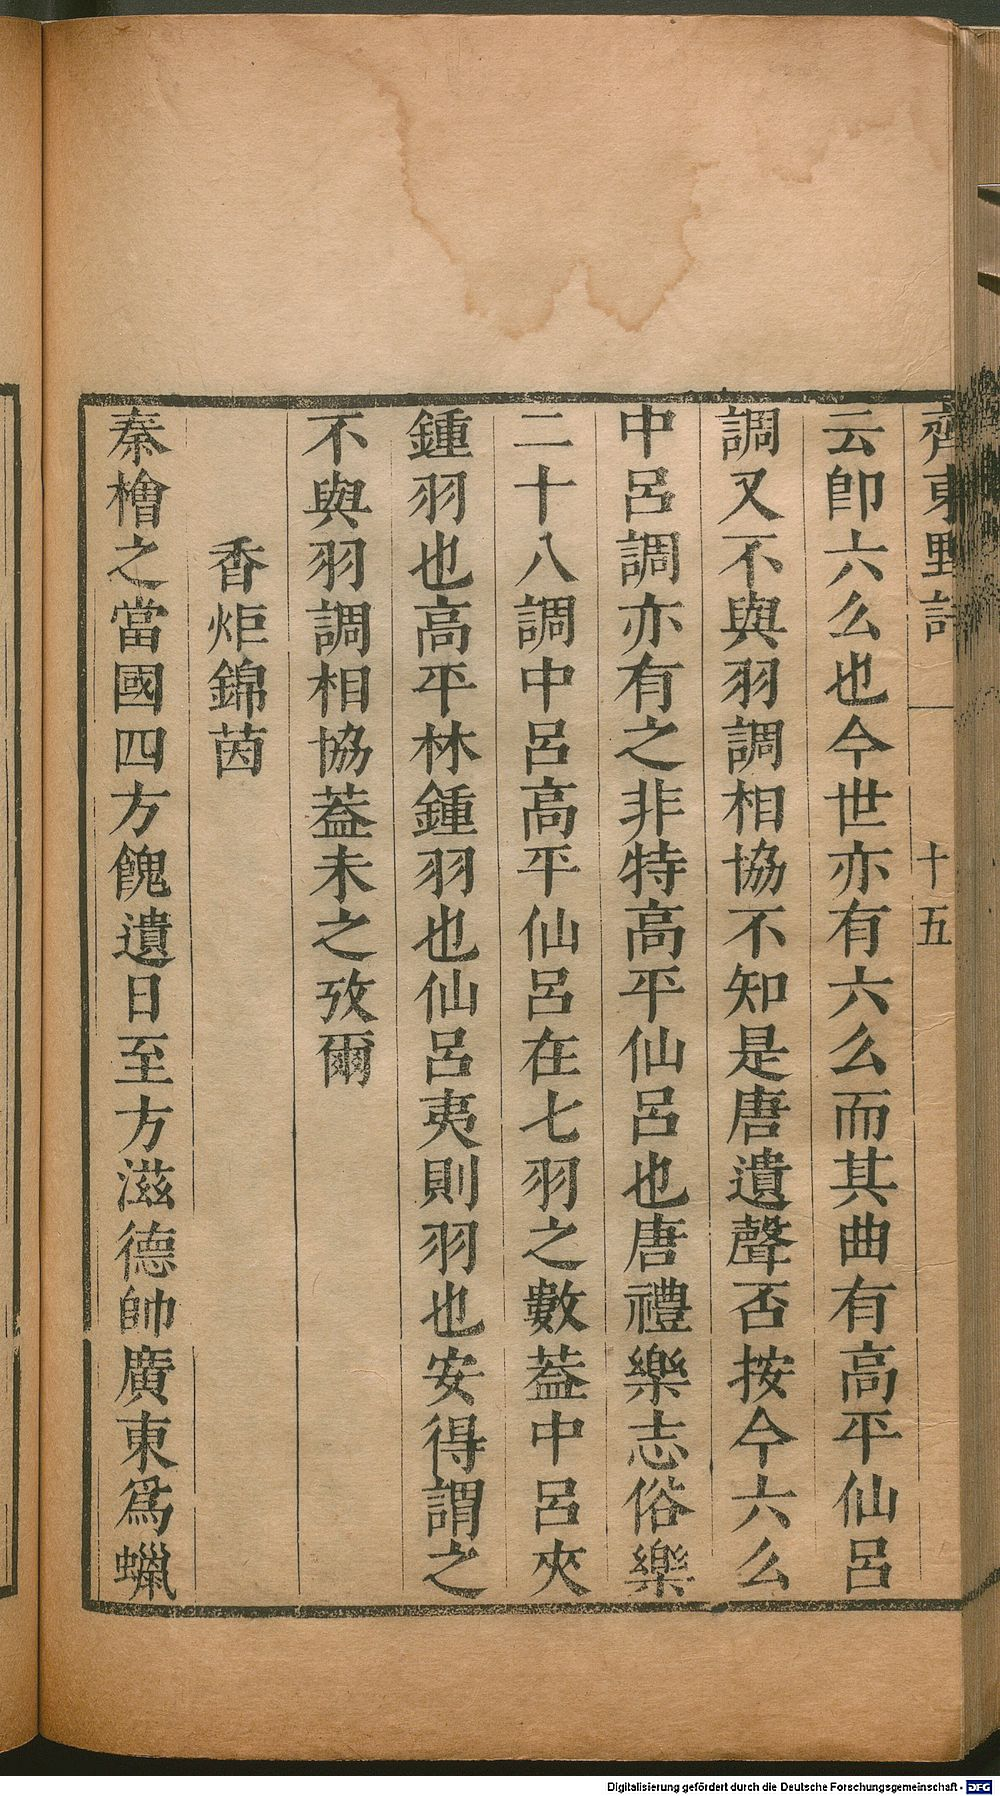 齊東野語 十五
云卽六么也今世亦有六么而其曲有高平仙呂
調又不與羽調相協不知是唐遺聲否按今六么
中呂調亦有之非特高平仙呂也唐禮樂志俗樂
二十八調中呂高平仙呂在七羽之數葢中呂夾
鍾羽也高平林鍾羽也仙呂夷則羽也安得謂之
不與羽調相協葢未之攷爾
香炬錦茵
秦檜之當國四方餽遺日至方滋德帥廣東爲蠟
Digitalisierung gefördert durch die Deutsche Forschungsgemeinschaft - DFG